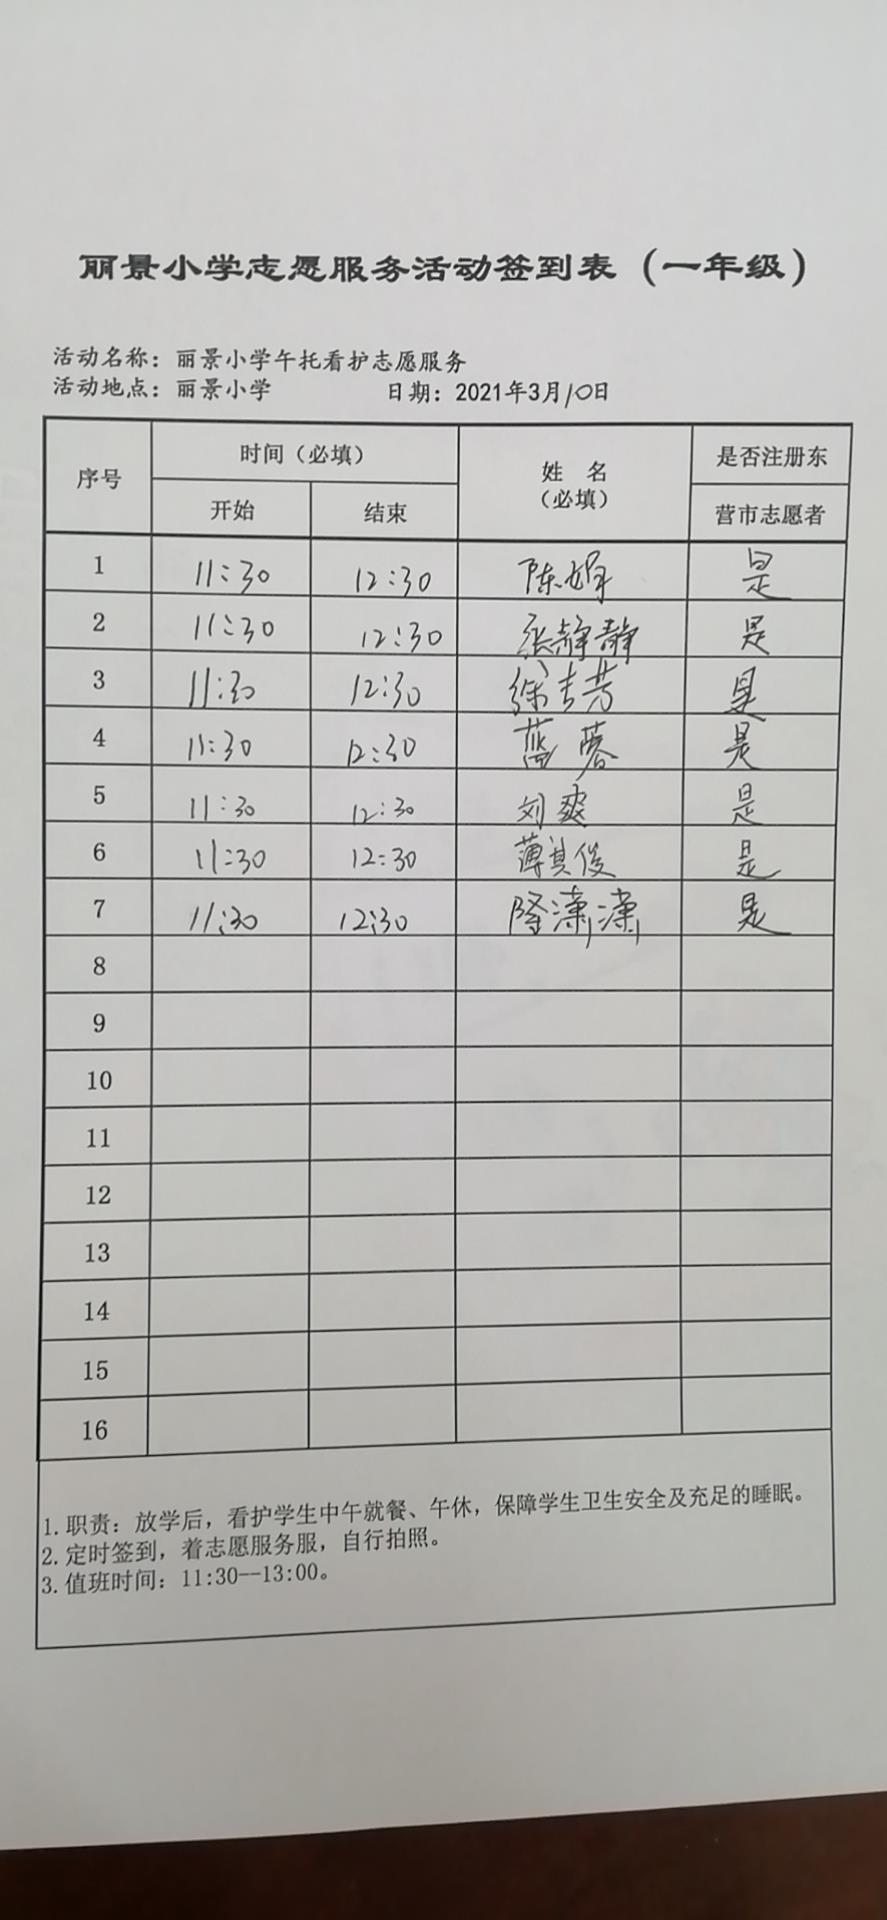 丽景小学志愿服务活动签到表（一年级）
活动名称：丽景小学午托看护志愿服务
活动地点：丽景小学 日期：2021年3月10日
序号 时间（必填） 姓 名（必填） 是否注册东营市志愿者
开始 结束
1 11:30 12:30 陈娟 是
2 11:30 12:30 张静静 是
3 11:30 12:30 徐吉芳 是
4 11:30 12:30 蓝蓉 是
5 11:30 12:30 刘爽 是
6 11:30 12:30 薄其俊 是
7 11:30 12:30 隆潇潇 是
8
9
10
11
12
13
14
15
16
1.职责：放学后，看护学生中午就餐、午休，保障学生卫生安全及充足的睡眠。
2.定时签到，着志愿服务服，自行拍照。
3.值班时间：11:30--13:00。